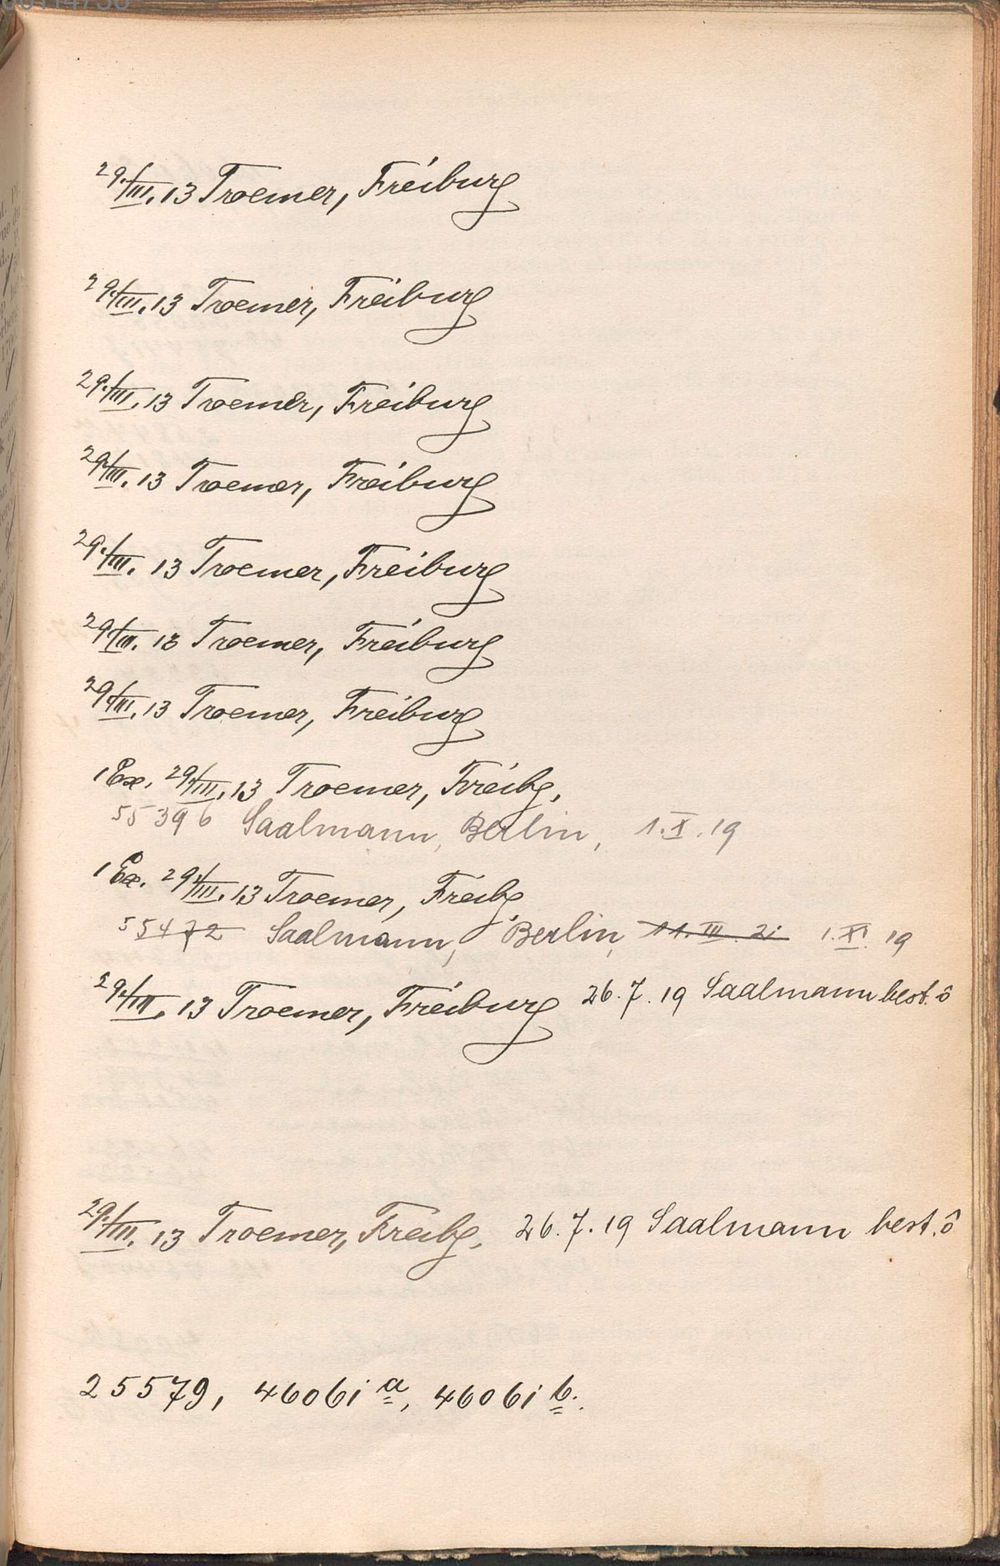 29./III. 13 Troemer, Freiburg
29./III. 13 Troemer, Freiburg
29./III. 13 Troemer, Freiburg
29./III. 13 Troemer, Freiburg
29./III. 13 Troemer, Freiburg
29./III. 13 Troemer, Freiburg
29./III. 13 Troemer, Freiburg
1 Ex. 29./III. 13 Troemer, Freibg.
55396 Saalmann, Berlin, 1.X.19
1 Ex. 29./III. 13 Troemer, Freibg
55472 Saalmann, Berlin, 11.III.21 1.XI.19
29./III. 13 Troemer, Freiburg 26.7.19 Saalmann best. ô
29./III. 13 Troemer, Freibg. 26.7.19 Saalmann best. ô
25579, 46061 a, 46061 b.